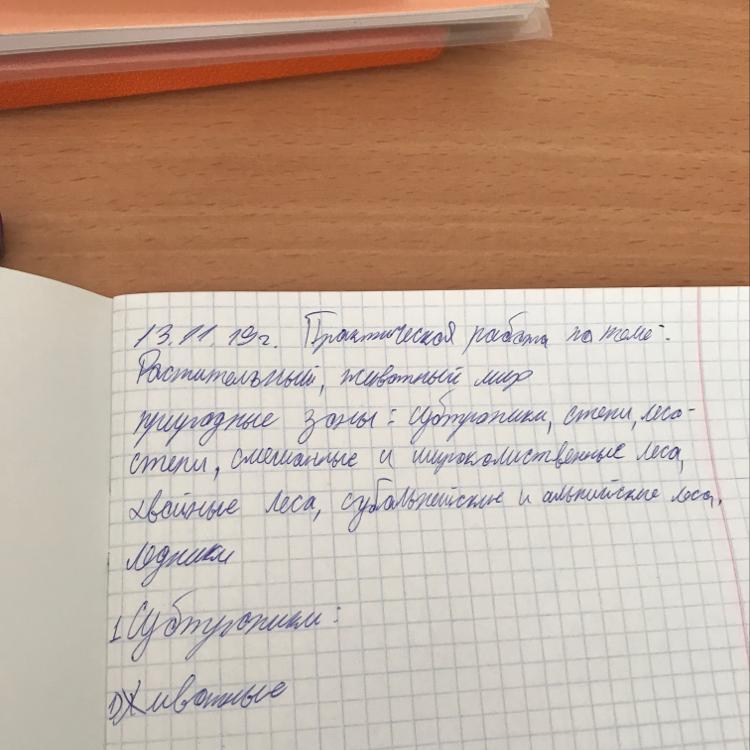 13.11.19г. Практическая работа по теме:
Растительный, животный мир
природные зоны: субтропики, степи, лесо-
степи, смешанные и широколиственные леса,
хвойные леса, субальпийские и альпийские леса,
ледники
1 Субтропики:
1) Животные